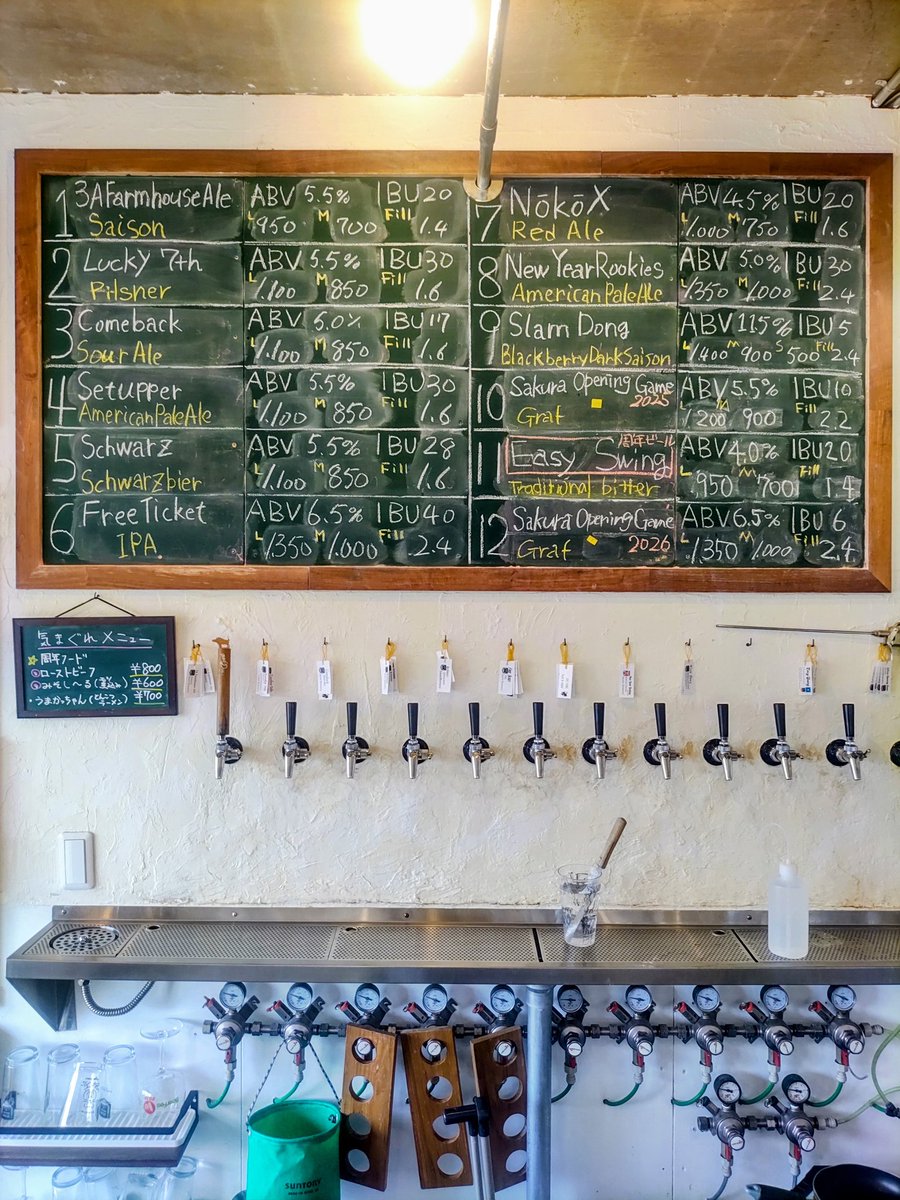 1 3A Farmhouse Ale ABV 5.5% IBU 20
Saison L 950 M 700 Fill 1.4
2 Lucky 7th ABV 5.5% IBU 30
Pilsner L 1.100 M 850 Fill 1.6
3 Comeback ABV 5.0% IBU 17
Sour Ale L 1.100 M 850 Fill 1.6
4 Setupper ABV 5.5% IBU 30
American Pale Ale L 1.100 M 850 Fill 1.6
5 Schwarz ABV 5.5% IBU 28
Schwarzbier L 1.100 M 850 Fill 1.6
6 Free Ticket ABV 6.5% IBU 40
IPA L 1350 M 1.000 Fill 2.4
7 NōkōX ABV 4.5% IBU 20
Red Ale L 1.000 M 750 Fill 1.6
8 New Year Rookies ABV 5.0% IBU 30
American Pale Ale L 1350 M 1.000 Fill 2.4
9 Slam Dong ABV 115% IBU 5
Blackberry Dark Saison L 1400 M 900 S 500 Fill 2.4
10 Sakura Opening Game 2025 ABV 5.5% IBU 10
Graf L 1200 M 900 Fill 2.2
11 周年ビール
Easy Swing ABV 4.0% IBU 20
Traditional bitter L 950 M 700 Fill 1.4
12 Sakura Opening Game ABV 6.5% IBU 6
Graf 2026 L 1.350 M 1.000 Fill 2.4
気まぐれメニュー
周年フード
ローストビーフ ¥800
みそし〜る ¥600
うまかっちゃん ¥700
SUNTORY